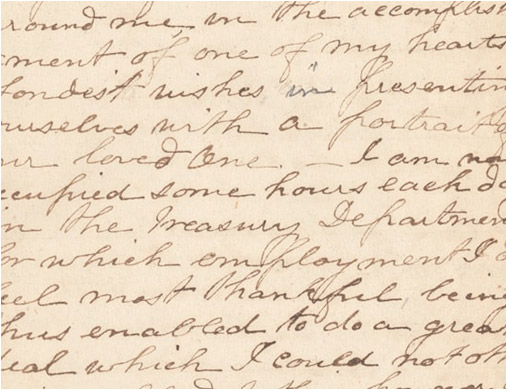 round me, in the accomplish
ment of one of my hearts
fondest wishes in presentin
urselves with a portrait
ur loved One. — I am
ccupied some hours each da
in the Treasury Departmen
for which employment I
eel most thankful, being
thus enabled to do a grea
deal which I could not oth